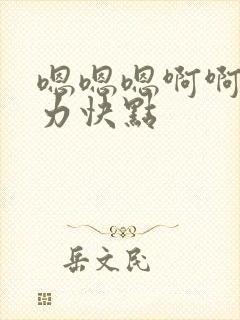 嗯嗯嗯啊啊
力快點
岳文民